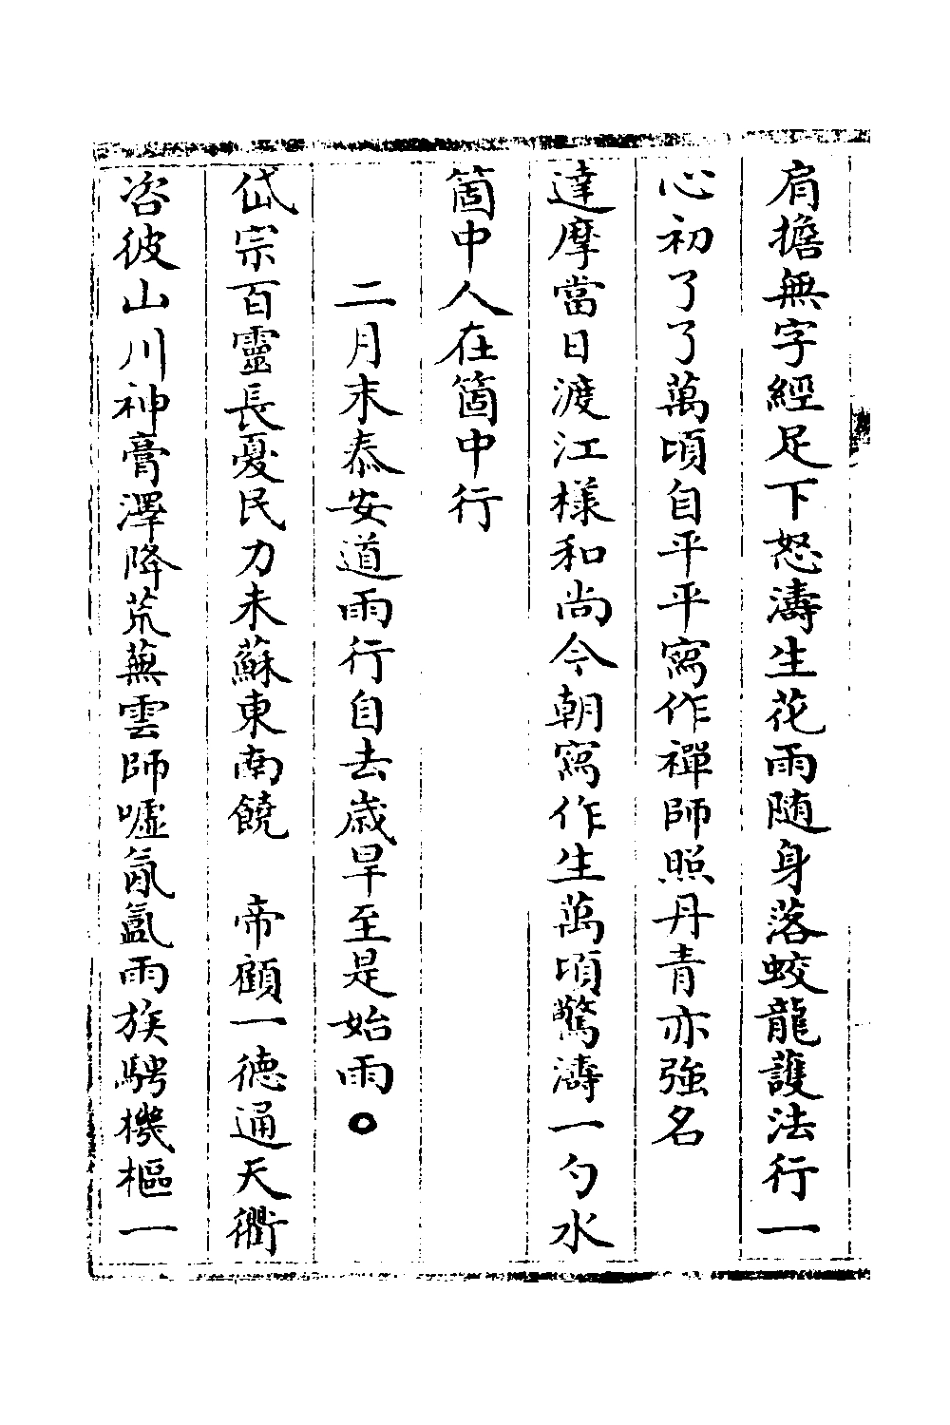 肩擔無字經足下怒濤生花雨随身落蛟龍護法行一
心初了了萬頃自平平寫作禪師照丹青亦強名
達摩當日渡江樣和尚今朝寫作生萬頃驚濤一勺水
箇中人在箇中行
二月末泰安道雨行自去歲旱至是始雨
岱宗百靈長憂民力未蘇東南饒　帝顧一德通天衢
咨彼山川神膏澤降荒蕪雲師噓氤氳雨族騁機樞一